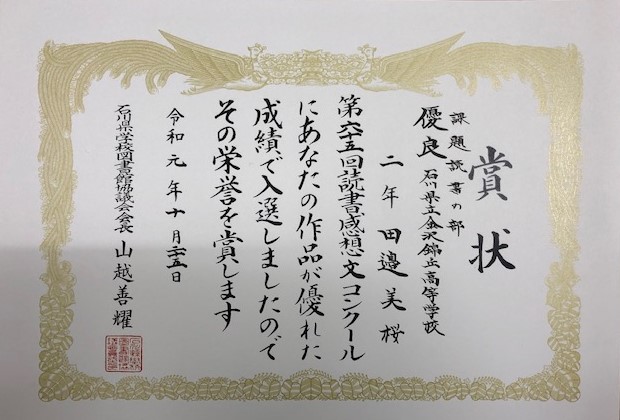 賞状
課題読書の部
優良 石川県立金沢錦丘高等学校
二年 田邉美桜
第六十五回読書感想文コンクール
にあなたの作品が優れた
成績で入選しましたので
その栄誉を賞します
令和元年十月二十五日
石川県学校図書館協議会会長 山越善耀